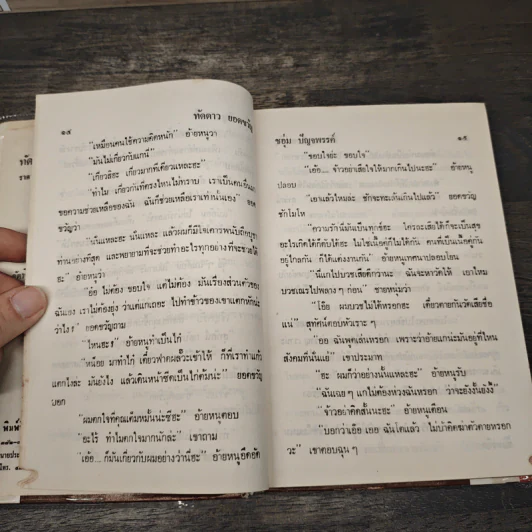 ๑๔
ทัดดาว ยอดขวัญ
"เหมือนคนใช้ความคิดหนัก" อ้ายหนูว่า
"มันไม่เกี่ยวกับแกนี่"
"เกี่ยวฮะ เกี่ยวมากทีเดียวแหละฮะ"
"ทำไม เกี่ยวกันที่ตรงไหนไม่ทราบ เราเป็นคน
ขอความช่วยเหลือของฉัน ฉันก็ช่วยเหลือเราเท่านั้นเอง" ยอด
ขวัญว่า
"นั่นแหละฮะ นั่นแหละ แล้วผมก็มีใจเคารพนับถือบูชา
ท่านอย่างที่สุด และพยายามที่จะช่วยทำอะไรทุกอย่างที่จะช่วยได้
ฮะ" อ้ายหนูว่า
"อ๋อ ไม่ต้อง ขอบใจ แต่ไม่ต้อง มันเรื่องส่วนตัวของ
ฉันเอง เราไม่ต้องยุ่ง ว่าแต่แกเถอะ ไปทำข้าวของเขาแตกหักน่ะ
ว่าไง?" ยอดขวัญถาม
"ไหนฮะ!" อ้ายหนูทำเป็นไก๋
"หน็อย มาทำไก๋ เดี๋ยวฟาดผลัวะเข้าให้ ก็ที่เราทำแก้ว
แตกไงล่ะ มันยังไง แล้วเดินหน้าซีดเป็นไก่ต้มน่ะ" ยอดขวัญ
บอก
"ผมตกใจที่คุณเต็มหมั้นน่ะซีฮะ" อ้ายหนูตอบ
"อะไร ทำไมตกใจมากนักล่ะ" เขาถาม
"เอ้อ... ก็มันเกี่ยวกับผมอย่างว่านี่ฮะ" อ้ายหนูอึดอัด
ชอุ่ม ปัญจพรรค์
๑๕
"ขอบใจย่ะ ขอบใจ"
"เอ้อ... จ้าวอย่าเสียใจให้มากเกินไปนะฮะ" อ้ายหนู
ปลอบ
"เอาแล้วไหมล่ะ ชักจะทะเล้นเกินไปแล้ว" ยอดขวัญ
ชักโมโห
"ความรักนี่มันเป็นทุกข์ฮะ ใครถอะเสียได้ก็จะเป็นสุข
อะไรเกิดได้ก็ดับได้ฮะ ไม่ใช่เนื้อคู่ก็ไม่ได้กัน คนที่เป็นเนื้อคู่กัน
อยู่ไกลกัน ก็ได้แต่งงานกัน" อ้ายหนูเทศนาปลอบโยน
"นี่แกไปบวชเสียดีกว่านะ ฉันจะหาวัดให้ เอาไหม
บวชเณรไปพลาง ๆ ก่อน" ชายหนุ่มว่า
"โอ๊ย ผมบวชไม่ได้หรอกฮะ เดี๋ยวตายกันวัดเสียชื่อ
แน่" สุทัศน์ตอบหัวเราะ ๆ
"ออ ฉันพูดเล่นหรอก เพราะว่าอ้ายแกน่ะมันอยู่ที่ไหน
สังคมที่นั่นแย่" เขาประมาท
"ฮะ ผมก็ว่าอย่างนั้นแหละฮะ" อ้ายหนูรับ
"ฉันเฉย ๆ แกไม่ต้องห่วงฉันหรอก ว่าจะยังงั้นยังงี้"
"จ้าวอย่าคิดสั้นนะฮะ" อ้ายหนูเตือน
"บอกว่าเอือ เออ ฉันโตแล้ว ไม่บ้าคิดฆ่าตัวตายหรอก
วะ" เขาตอบฉุน ๆ